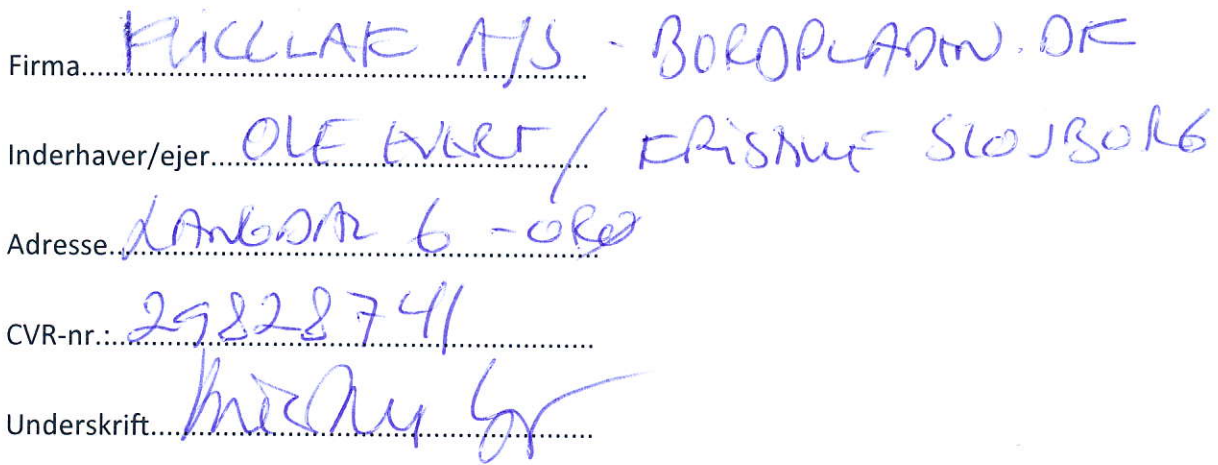 Firma.......... A/S - BORDPLADEN.DK
Inderhaver/ejer.......... OLE EVERT / KRISTINE SLOJBORG
Adresse.......... LANGDAL 6 - ORØ
CVR-nr.:.......... 29828741
Underskrift..........